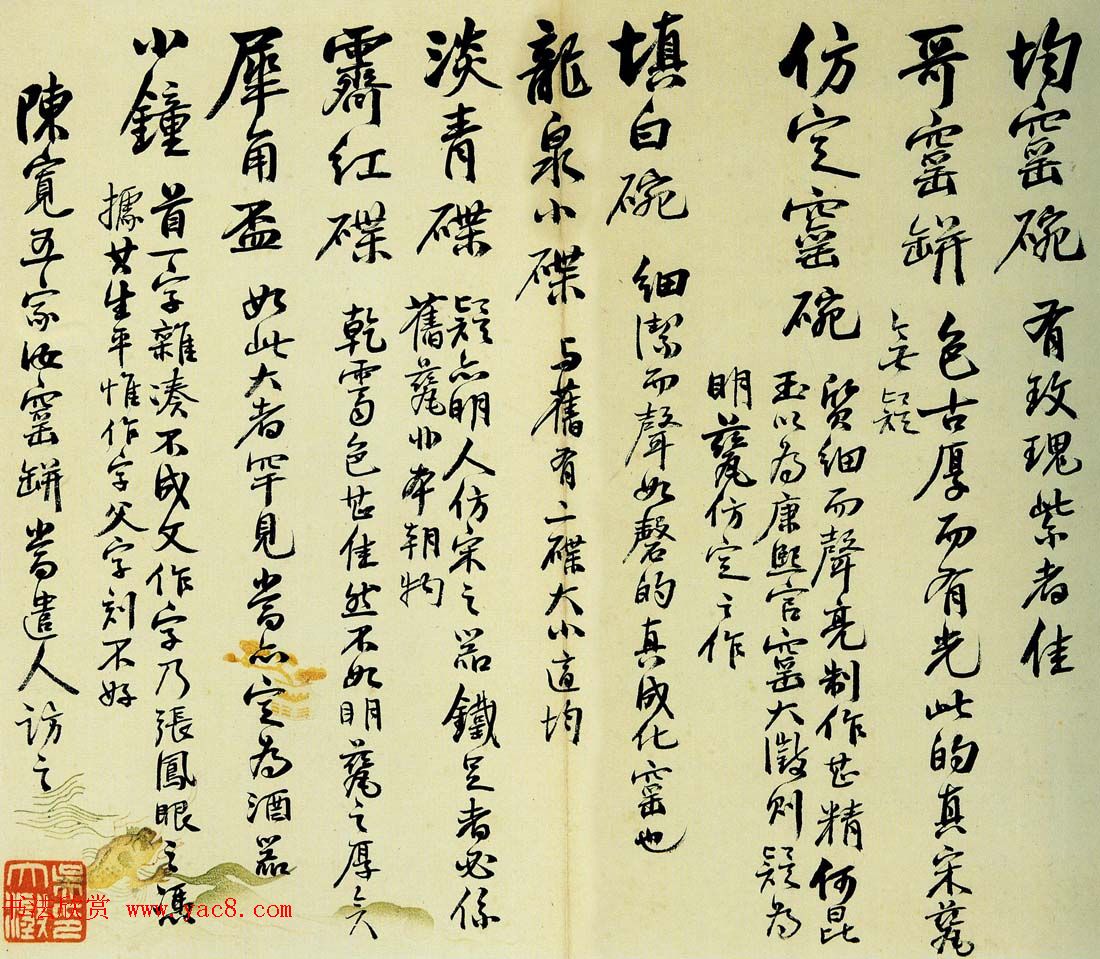 均窑碗 有玫瑰紫者佳
哥窑缾 色古厚而有光此的真宋甆
無疑
仿定窑碗 質细而聲亮制作甚精何昆
玉以為康熙官窑大澂则疑為
明甆仿定之作
填白碗 细潔而聲如磬的真成化窑也
龍泉小碟 与舊有二碟大小適均
淡青碟 疑亦明人仿宋之器鐵足者必係
舊甆非本朝物
霽红碟 乾霽色甚佳然不如明甆之厚矣
犀角盃 如此大者罕見當亦定為酒器
小鐘 首一字雜凑不成文作字乃張鳳眼之憑
據其生平惟作字父字刻不好
陳寬五家汝窑缾當遣人訪之
书法欣赏 www.yac8.com